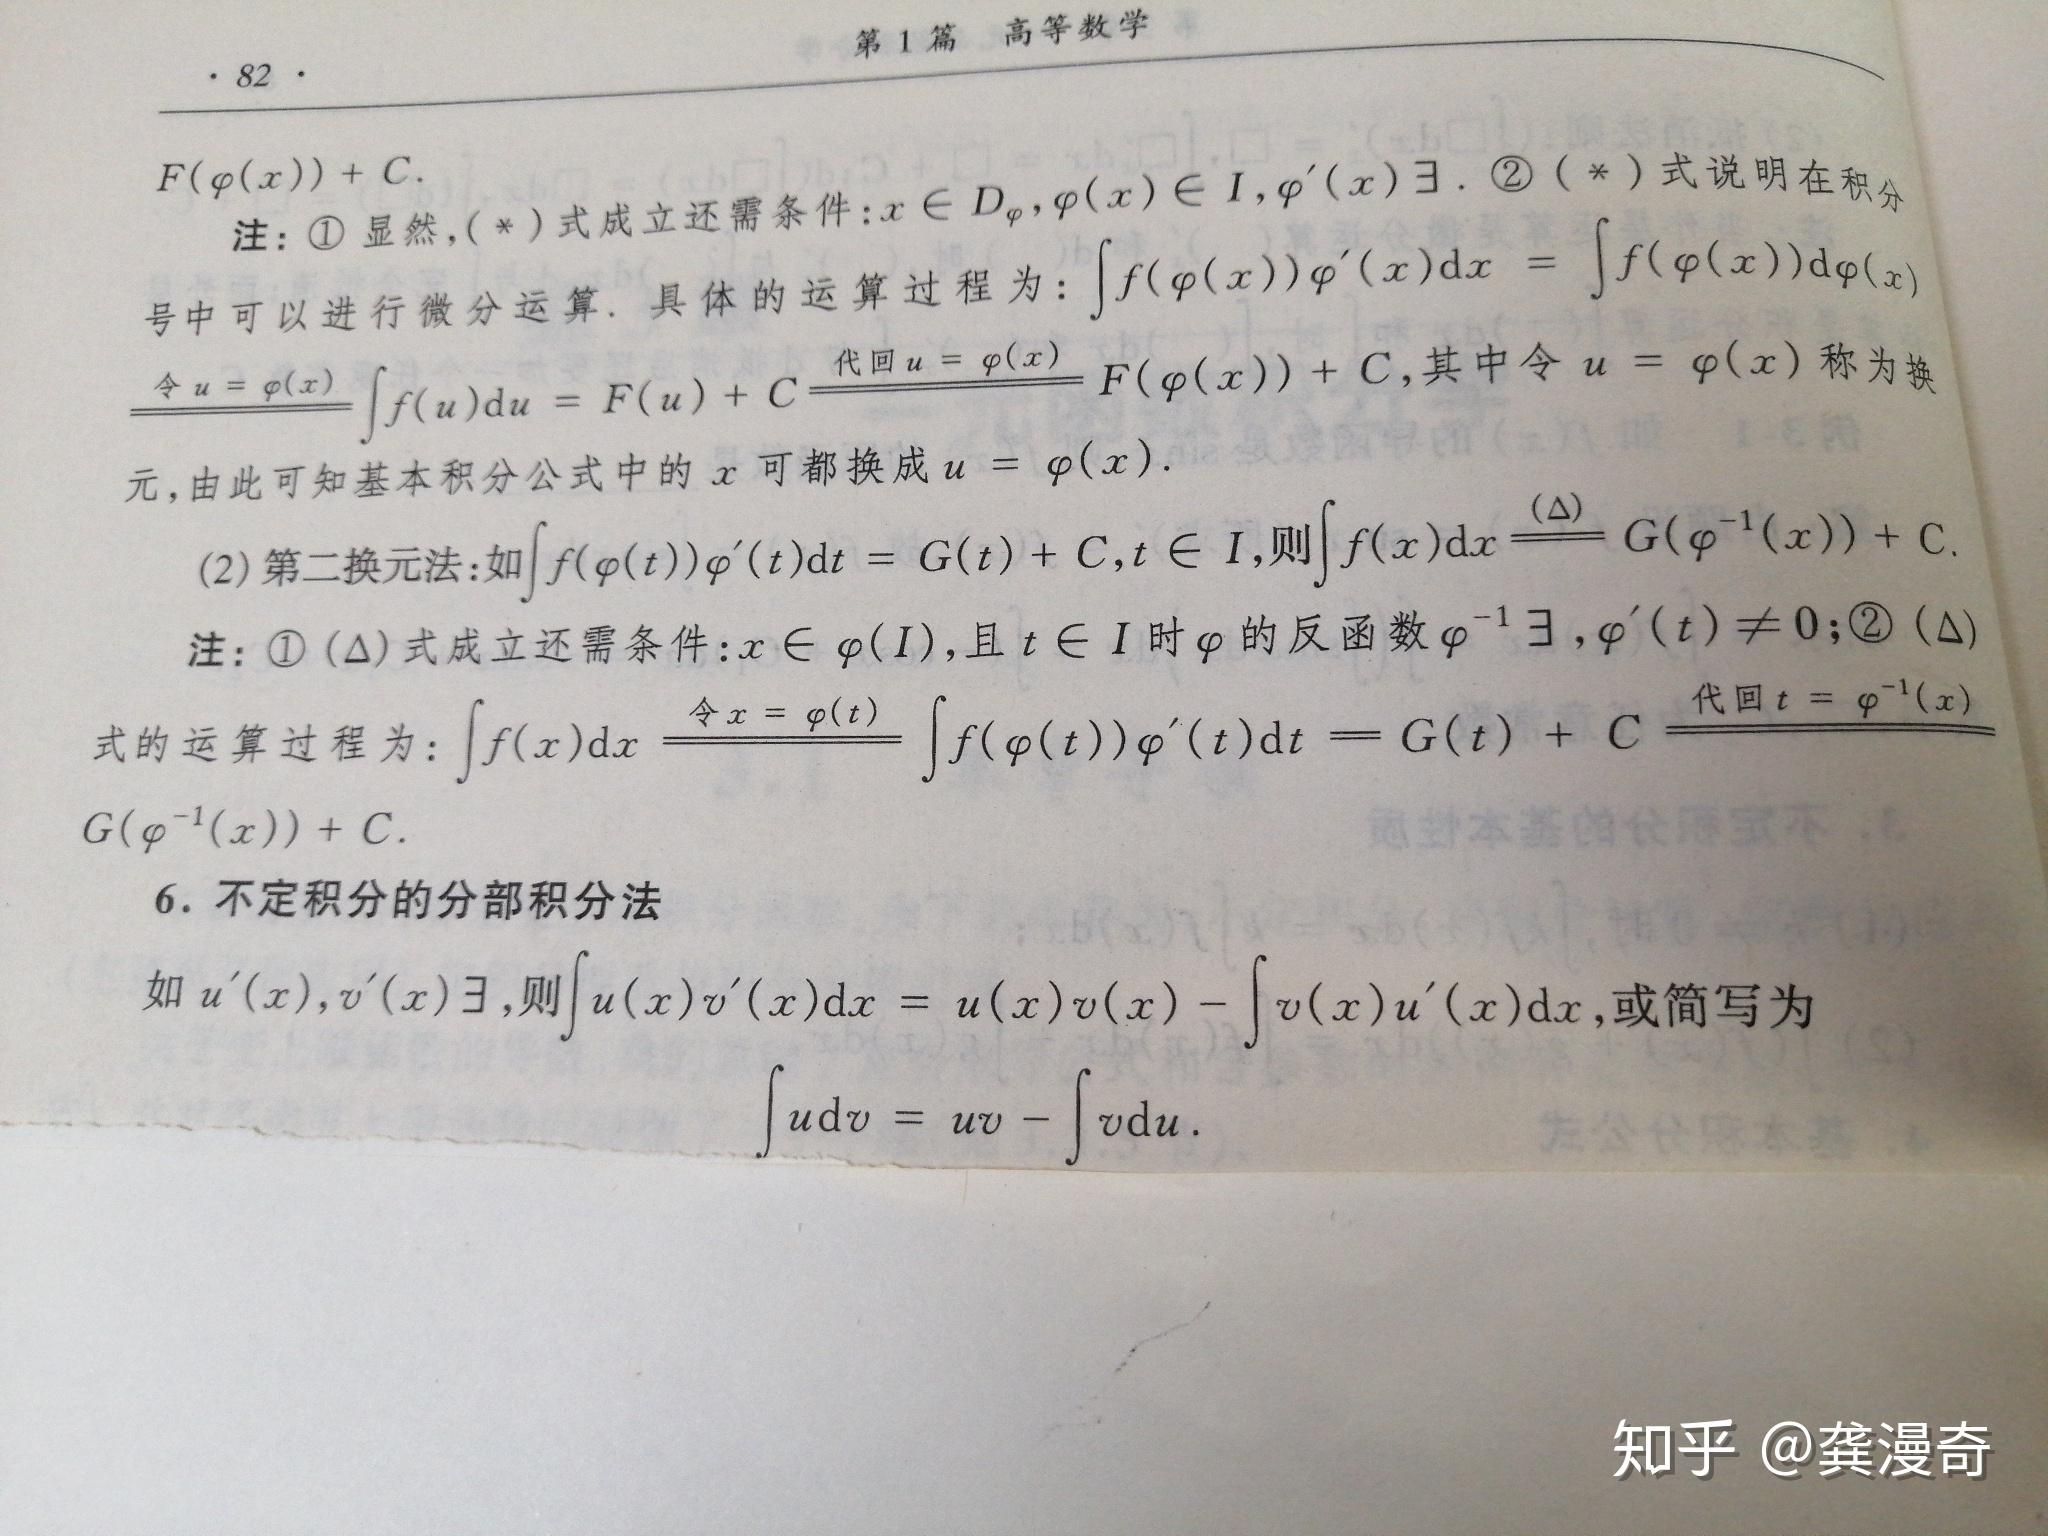 · 82 ·
第 1 篇 高等数学
F(φ(x)) + C.
注: ① 显然,(*)式成立还需条件:x ∈ Dφ,φ(x) ∈ I,φ′(x) ∃. ② (*)式说明在积分
号中可以进行微分运算. 具体的运算过程为:∫f(φ(x))φ′(x)dx = ∫f(φ(x))dφ(x)
令 u = φ(x) ∫f(u)du = F(u) + C 代回 u = φ(x) F(φ(x)) + C,其中令 u = φ(x) 称为换
元,由此可知基本积分公式中的 x 可都换成 u = φ(x).
(2) 第二换元法:如∫f(φ(t))φ′(t)dt = G(t) + C,t ∈ I,则∫f(x)dx (Δ) G(φ⁻¹(x)) + C.
注: ① (Δ)式成立还需条件:x ∈ φ(I),且 t ∈ I 时 φ 的反函数 φ⁻¹ ∃,φ′(t) ≠ 0;② (Δ)
式的运算过程为:∫f(x)dx 令 x = φ(t) ∫f(φ(t))φ′(t)dt = G(t) + C 代回 t = φ⁻¹(x)
G(φ⁻¹(x)) + C.
6. 不定积分的分部积分法
如 u′(x),v′(x) ∃,则∫u(x)v′(x)dx = u(x)v(x) − ∫v(x)u′(x)dx,或简写为
∫udv = uv − ∫vdu.
知乎 @龚漫奇